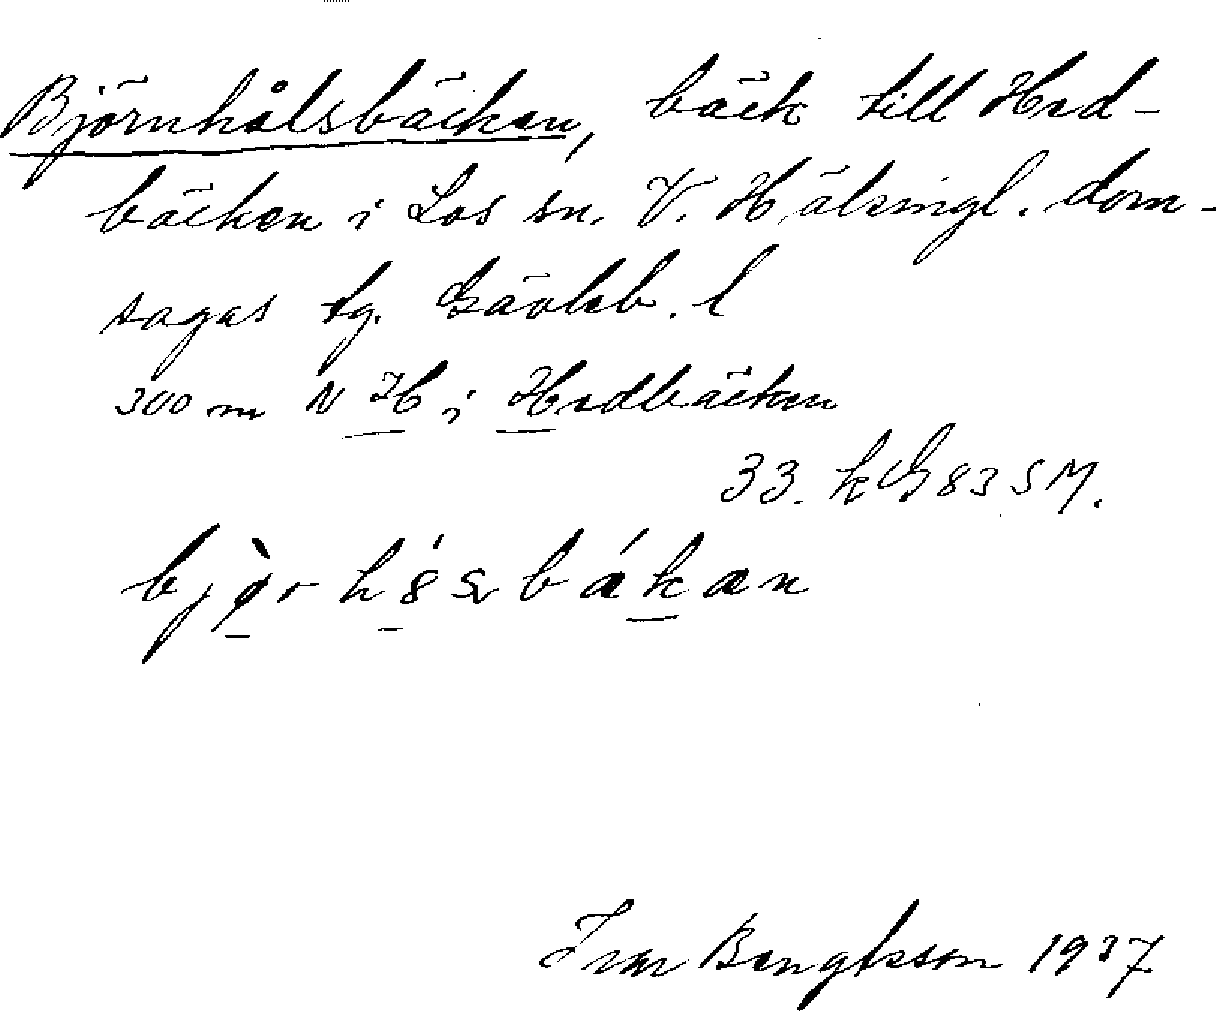 Björnhålsbäcken, bäck till Hed-
bäcken i Los sn. V. Hälsingl. dom-
sagas tg. Gävleb. l
300 m N H i Hedbäcken
33. k G 83 S M.
Ivar Bengtsson 1937